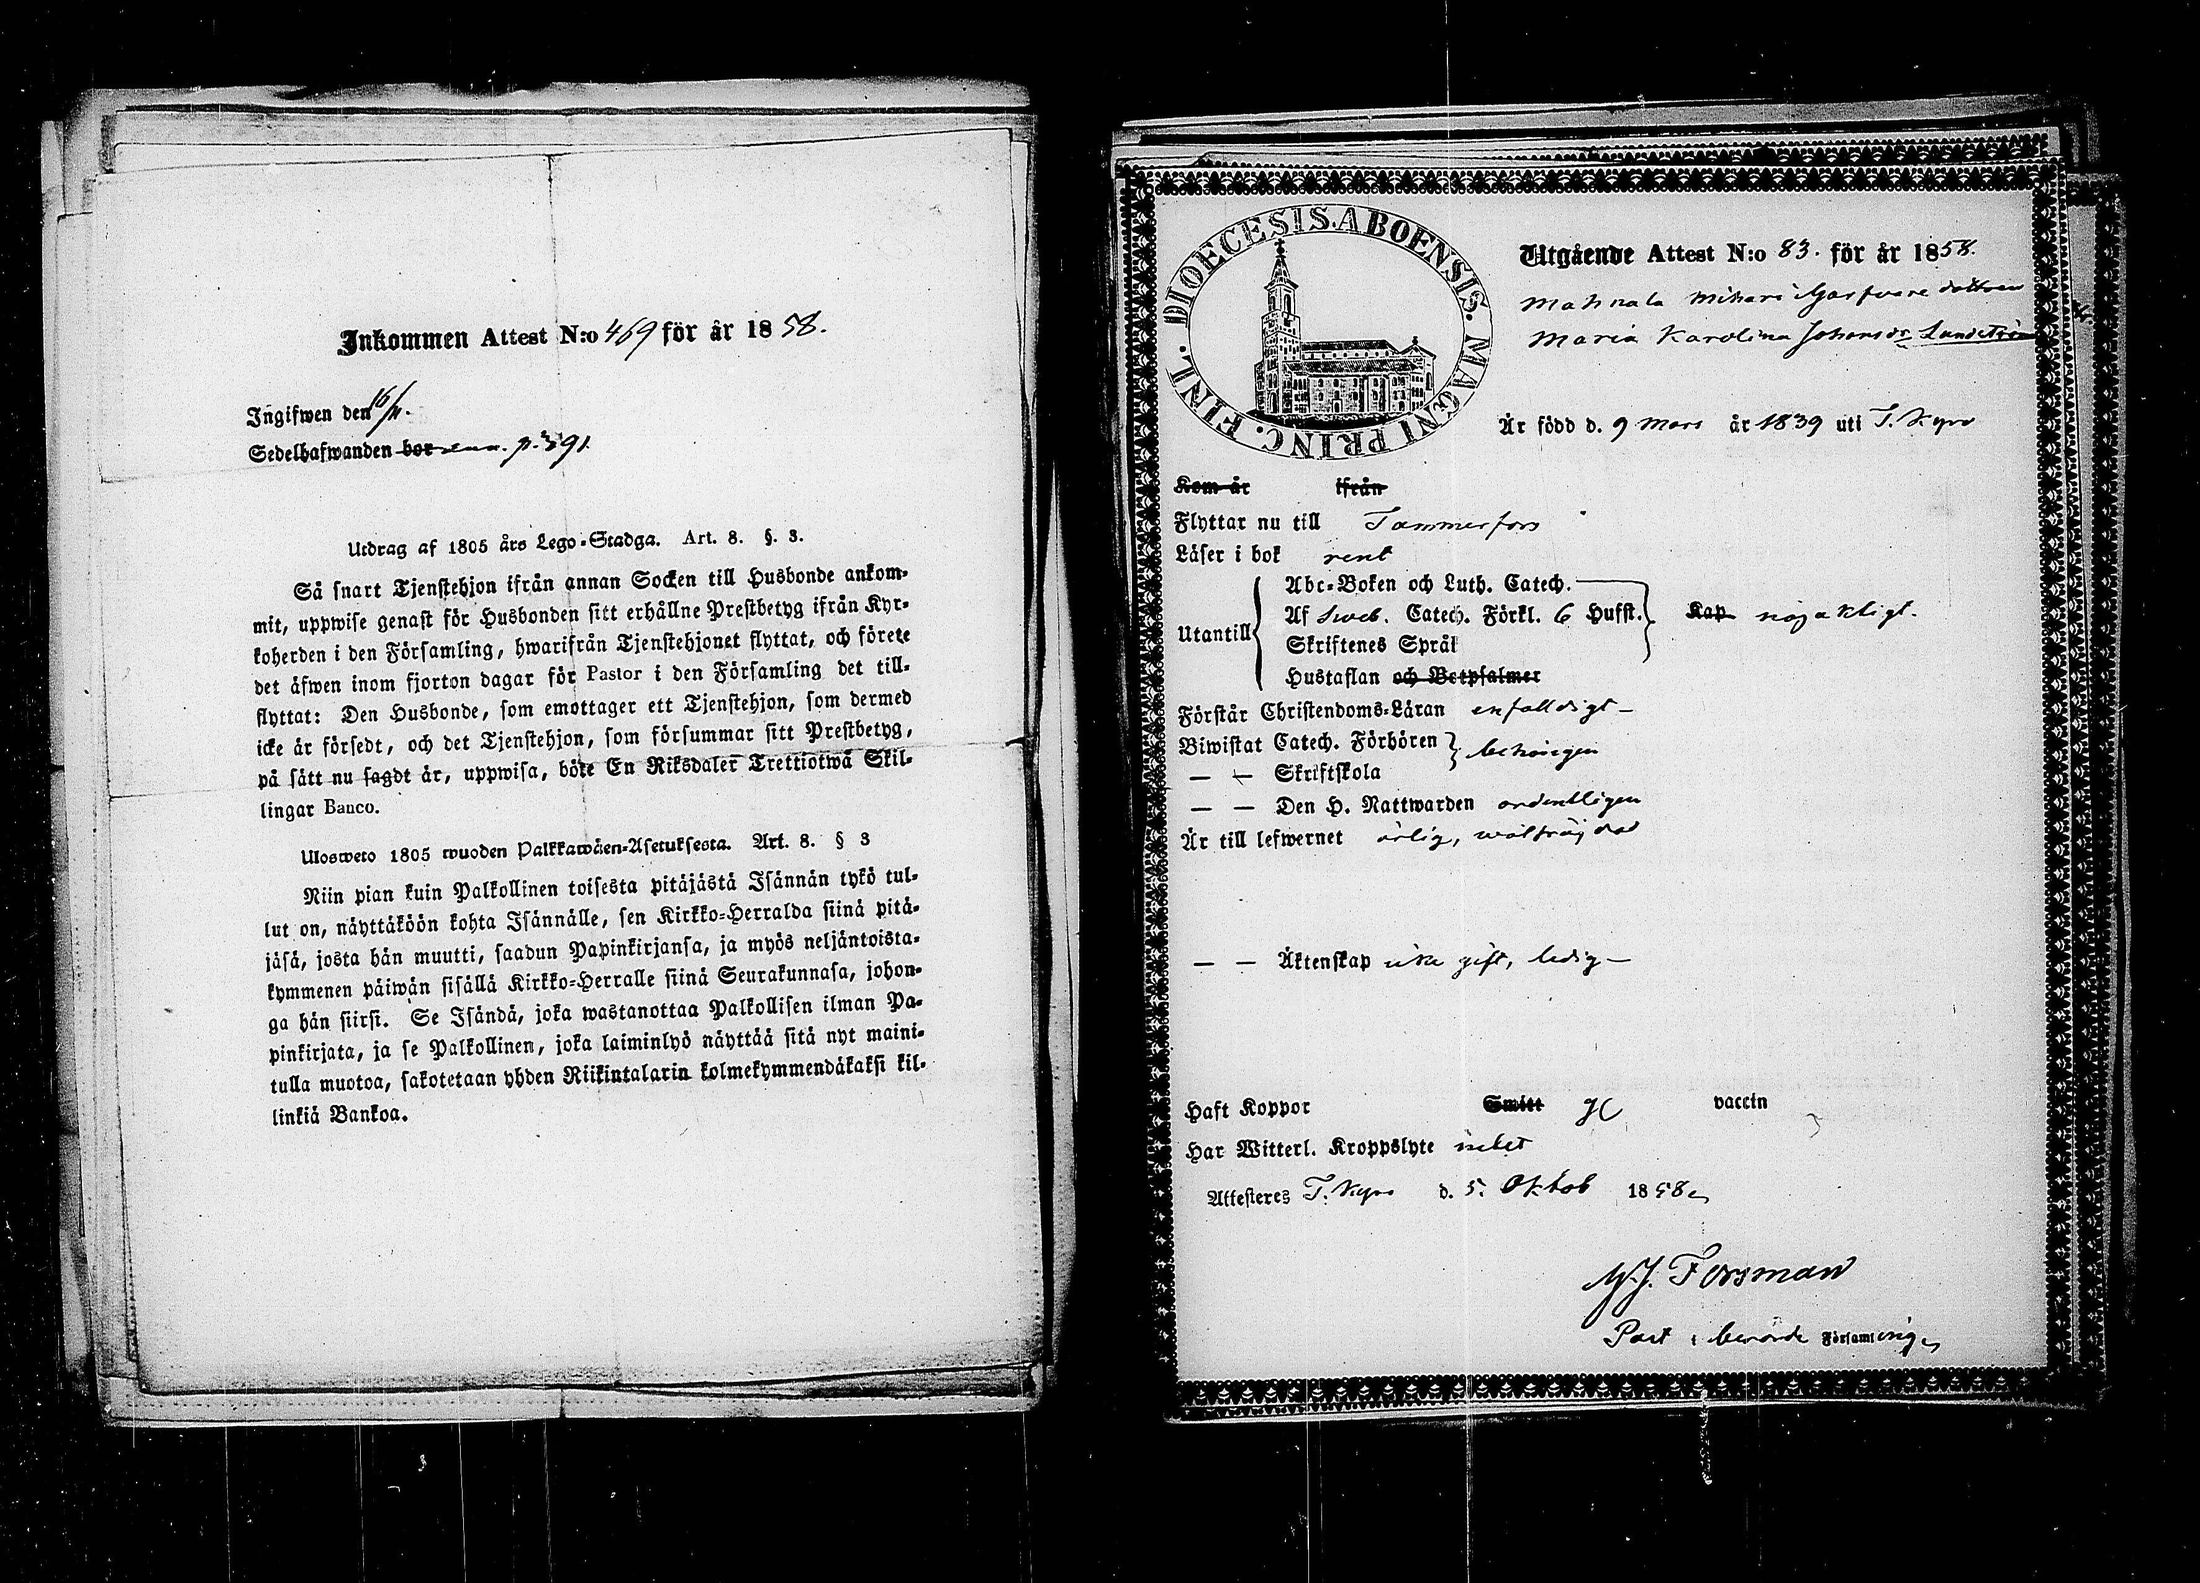 Inkommen Attest N:o 469 för år 1858.
Ingifwen den 16/11.
Sedelhafwanden bor p. 391.
Utdrag af 1805 års Lego-Stadga. Art. 8. §. 3.
Så snart Tjenstehjon ifrån annan Socken till Husbonde ankom-
mit, uppwise genast för Husbonden sitt erhållne Prestbetyg ifrån Kyr-
koherden i den Församling, hwarifrån Tjenstehjonet flyttat, och förete
det äfwen inom fjorton dagar för Pastor i den Församling det till-
flyttat: Den Husbonde, som emottager ett Tjenstehjon, som dermed
icke är försedt, och det Tjenstehjon, som försummar sitt Prestbetyg,
på sätt nu sagdt är, uppwisa, böte En Riksdaler Trettiotwå Skil-
lingar Banco.
Ulosweto 1805 wuoden Palkkawäen-Asetuksesta. Art. 8. § 3
Niin pian kuin Palkollinen toisesta pitäjästä Isännän tykö tul-
lut on, näyttäköön kohta Isännälle, sen Kirkko-Herralda siinä pitä-
jäsä, josta hän muutti, saadun Papinkirjansa, ja myös neljäntoista-
kymmenen päiwän sisällä Kirkko-Herralle siinä Seurakunnasa, johon-
ga hän siirsi. Se Isändä, joka wastanottaa Palkollisen ilman Pa-
pinkirjata, ja se Palkollinen, joka laiminlyö näyttää sitä nyt maini-
tulla muotoa, sakotetaan yhden Riikintalarin kolmekymmendäkaksi kil-
linkiä Bankoa.
DIOECESIS.ABOENSIS.MAGNI PRINC.FINL.
Utgående Attest N:o 83. för år 1858.
Mahnala Mihari Garfvare dottren
Maria Karolina Johansdr Lundström
Är född d. 9 Mars år 1839 uti T. Kyro
Kom år ifrån
Flyttar nu till Tammerfors
Läser i bok rent
Utantill
Abc-Boken och Luth. Catech.
Af Sweb. Catech. Förkl. 6 Hufst. Kap nöjaktligt.
Skriftenes Språk
Hustaflan och Botpsalmer
Förstår Christendoms-Läran enfaldigt —
Biwistat Catech. Förhören behörigen
— — Skriftskola
— — Den H. Nattwarden ordentligen
Är till lefwernet ärlig, wälfräjdad
— — Äktenskap icke gift, ledig —
Haft Koppor Switt vaccin
Har Witterl. Kroppslyte intet
Attesteras T. Kyro d. 5. Oktob 1858
Forsman
Past i berörde Församling